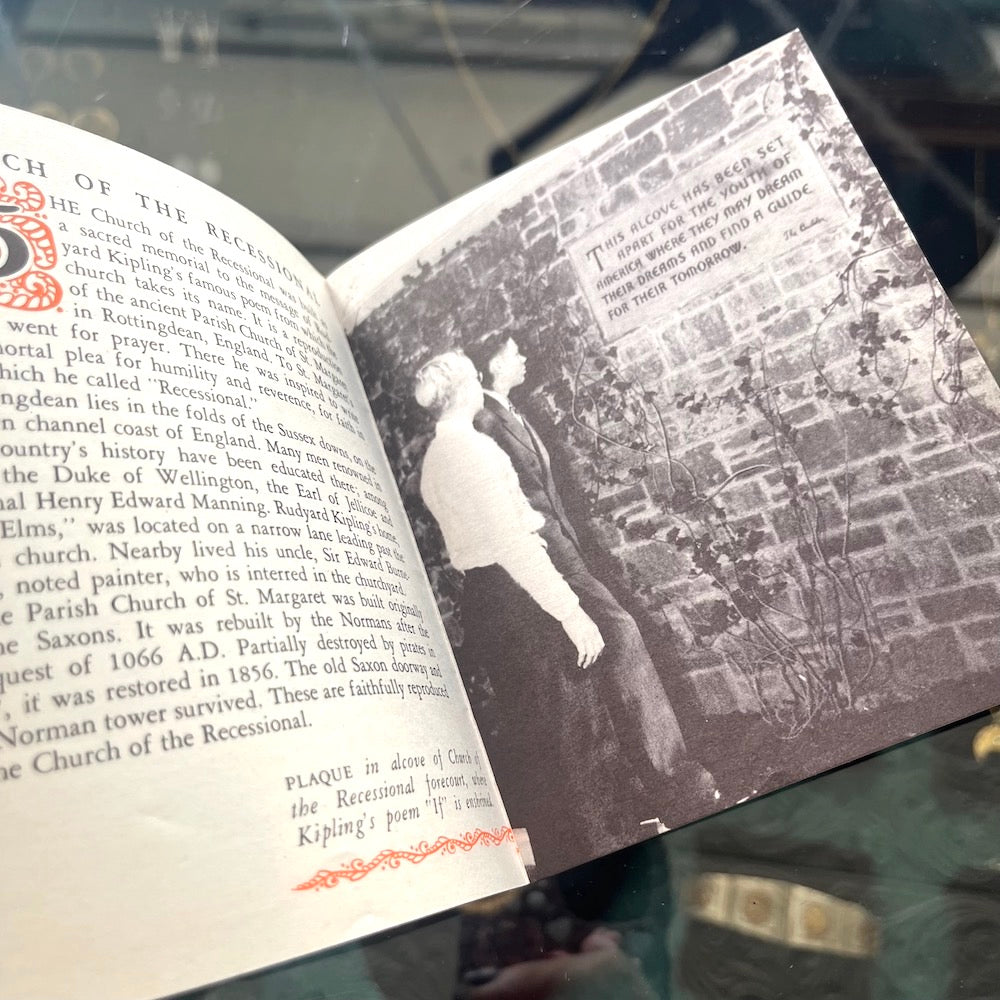 CH OF THE RECESSIONAL
HE Church of the Recessional was built as
a sacred memorial to the message of Rud-
yard Kipling's famous poem from which the
church takes its name. It is a reproduction
of the ancient Parish Church of St. Margaret
in Rottingdean, England. To St. Margaret's
went for prayer. There he was inspired to write
mortal plea for humility and reverence, for faith in
hich he called "Recessional."
ngdean lies in the folds of the Sussex downs, on the
n channel coast of England. Many men renowned in
ountry's history have been educated there; among
the Duke of Wellington, the Earl of Jellicoe and
nal Henry Edward Manning. Rudyard Kipling's home,
Elms," was located on a narrow lane leading past the
church. Nearby lived his uncle, Sir Edward Burne-
, noted painter, who is interred in the churchyard.
e Parish Church of St. Margaret was built originally
he Saxons. It was rebuilt by the Normans after the
quest of 1066 A.D. Partially destroyed by pirates in
, it was restored in 1856. The old Saxon doorway and
Norman tower survived. These are faithfully reproduced
he Church of the Recessional.
PLAQUE in alcove of Church of
the Recessional forecourt, where
Kipling's poem "If" is enshrined.
THIS ALCOVE HAS BEEN SET
APART FOR THE YOUTH OF
AMERICA WHERE THEY MAY DREAM
THEIR DREAMS AND FIND A GUIDE
FOR THEIR TOMORROW.
The Builder